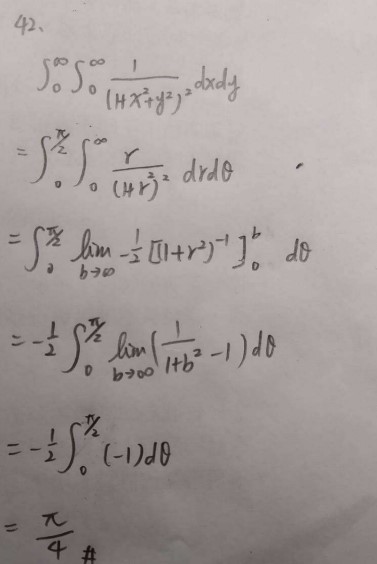 42.
∫₀^∞ ∫₀^∞ 1/(1+x²+y²)² dxdy
= ∫₀^{π/2} ∫₀^∞ r/(1+r²)² drdθ
= ∫₀^{π/2} lim_{b→∞} -1/2 [(1+r²)⁻¹]₀^b dθ
= -1/2 ∫₀^{π/2} lim_{b→∞} (1/(1+b²) - 1) dθ
= -1/2 ∫₀^{π/2} (-1) dθ
= π/4 #